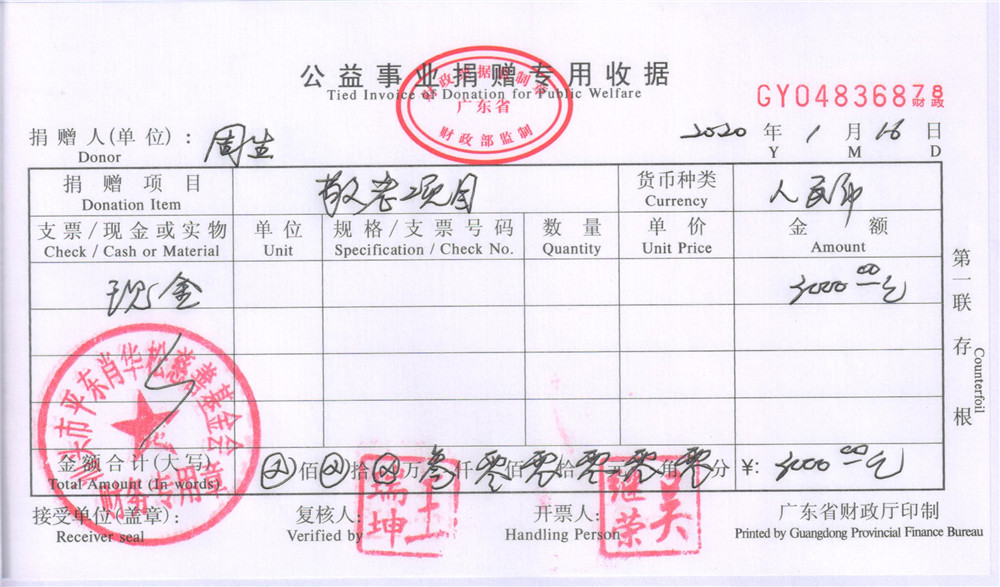 公益事业捐赠专用收据
Tied Invoice of Donation for Public Welfare
广东省
财政部监制
GY04836878
财政
捐赠人(单位): 周生
Donor
2020 年 1 月 16 日
Y M D
捐赠项目 敬老项目 货币种类 人民币
Donation Item Currency
支票/现金或实物 单位 规格/支票号码 数量 单价 金额
Check / Cash or Material Unit Specification / Check No. Quantity Unit Price Amount
现金 3000.00元
第一联 存根
Counterfoil
市平东肖华松慈善基金会
财务专用章
金额合计(大写) 佰 拾 万 叁 仟 零 佰 零 拾 零 元 零 角 零 分 ¥: 3000.00元
Total Amount (In words)
接受单位(盖章): 复核人: 开票人: 广东省财政厅印制
Receiver seal Verified by Handling Person Printed by Guangdong Provincial Finance Bureau
王瑞坤
吴继荣